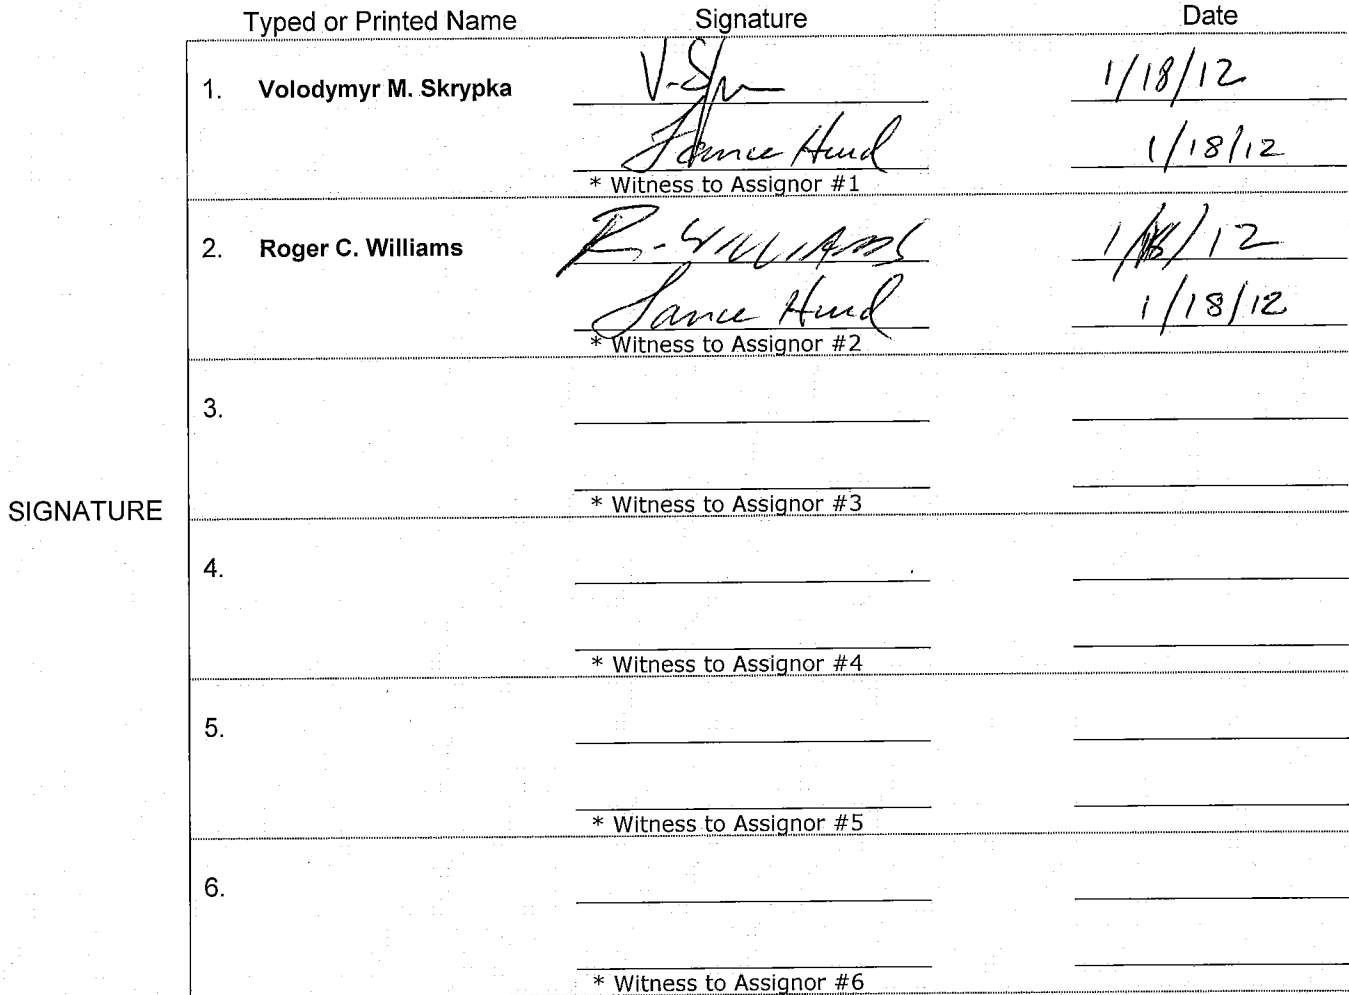 Typed or Printed Name Signature Date
1. Volodymyr M. Skrypka 1/18/12
Lance Hurd 1/18/12
* Witness to Assignor #1
2. Roger C. Williams R-WILLIAMS 1/18/12
Lance Hurd 1/18/12
* Witness to Assignor #2
3.
* Witness to Assignor #3
SIGNATURE
4.
* Witness to Assignor #4
5.
* Witness to Assignor #5
6.
* Witness to Assignor #6